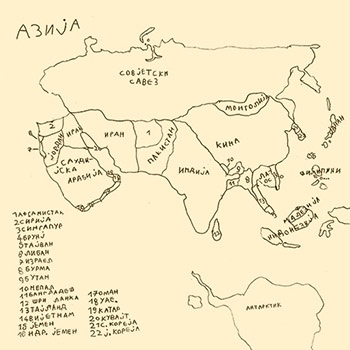 АЗИЈА
СОВЈЕТСКИ
САВЕЗ
МОНГОЛИЈА
КИНА
ИРАК
ИРАН
1
2
ПАКИСТАН
ИНДИЈА
САУДИ-
ЈСКА
АРАБИЈА
8
11
МАЛЕЗИЈА
ИНДОНЕЗИЈА
АНТАРКТИК
1 АФГАНИСТАН
2 СИРИЈА
3 СИНГАПУР
4 БРУНЈ
5 ТАЈВАН
6 ЛИБАН
7 ИЗРАЕЛ
8 БУРМА
9 БУТАН
10 НЕПАЛ
11 БАНГЛАДЕШ
12 ШРИ ЛАНКА
13 ТАЈЛАНД
14 ВИЈЕТНАМ
15 ЈЕМЕН
16 НДР. ЈЕМЕН
17 ОМАН
18 УАЕ.
19 КАТАР
20 КУВАЈТ
21 С. КОРЕЈА
22 Ј. КОРЕЈА